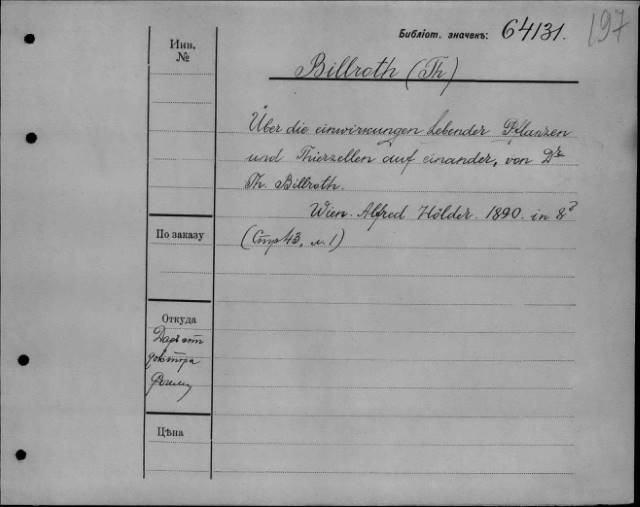 197
Библіот. значекъ: 64131.
Инв.
№
Billroth (Th)
Über die einwirkungen Lebender Pflanzen
und Thierzellen auf einander, von Dr
Th. Billroth.
Wien. Alfred Hölder. 1890. in 8º
По заказу
(Стр 43, м. 1)
Откуда
Даръ отъ
доктора
Цѣна